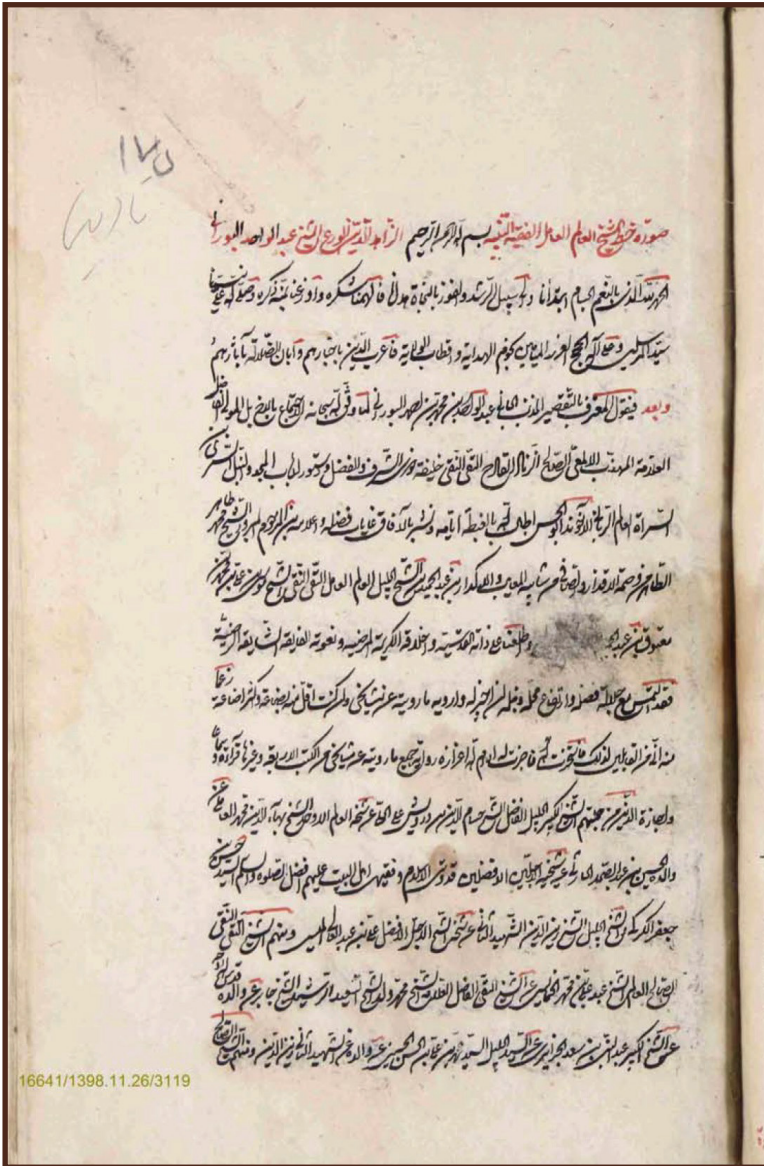 ١٢٥
صورة خط الشيخ العالم العامل الفقيه النبيه بسم الله الرحمن الرحيم الزاهد الدين الورع الشيخ عبد الواحد البوراني
الحمد لله الذي بالنعم الجسام ابتدأنا والى سبيل الرشد والفوز بالنجاة هدانا فألهمنا شكره وأوزعنا بمنه ذكره وصلى الله على نبينا
سيد المرسلين وعلى آله الحجج الغرر الميامين نجوم الهداية واقطاب الولاية ما عرب الدين باخبارهم وأبان الضلالة بآثارهم
وبعد فيقول المعترف بالتقصير المذنب الجاني عبد الواحد بن محمد بن احمد البوراني لما وفق الله سبحانه الاجتماع بالاخ بل المولى الفاضل
العلامة المهذب الالمعي الصالح الفالح التقي النقي خليفة الشرف والفضل المجد والنبل
السراة العالم الرباني الآخوند ابو الحسن اطال الله بالغبطة ايامه ونشر بالآفاق غايات فضله واعلامه بن المرحوم المبرور الشيخ محمد طاهر
الطاهر من وصمة الاقذار والصافي من شايبة المعايب والاكدار بن عبد الحميد بن الشيخ الجليل العالم العامل التقي النقي الشيخ موسى بن علي بن محمد بن
معتوق بن عبد واطلعنا على ذاته القدسية واخلاقه الكريمة المرضية ونعوته الفايقة الشايقة الرضية
فقد التمس مع جلالة فضله وارتفاع محله ونبله ان اجيز له وارويه ما رويته عن مشايخي ولو كنت اقل منه بضاعة واكثر اضاعة زعما
منه اني من القابلين لذلك فاستخرت الله فاجزت له ادام الله اعزازه رواية جميع ما رويته عن مشايخي من الكتب الاربعة وغيرها قراءة وسماعا
واجازة الذين من جملتهم الشيخ الكبير الجليل الفاضل الشيخ حسام الدين بن درويش علي الحلي عن شيخه العالم الاوحد الشيخ بهاء الدين محمد العاملي عن
والده الحسين بن عبد الصمد الحارثي عن شيخيه الجليلين الافضلين قدوتي الاسلام وفقيهي اهل البيت عليهم افضل الصلوة والسلم السيد حسن بن
جعفر الكركي والشيخ الجليل الشيخ زين الدين الشهيد الثاني عن شيخه الشيخ الاجل الافضل علي بن عبد العالي الميسي ومنهم الشيخ التقي النقي
الصالح العالم الشيخ عبد علي بن محمد الخمايسي عن الشيخ التقي الفاضل العلامة الشيخ محمد ولد الشيخ السعيد الرشيد الشيخ جابر عن والده
عن الشيخ الكبير عبد النبي بن سعد الجزايري عن السيد الجليل السيد محمد بن علي بن الحسين الحسيني عن والده عن الشهيد الثاني زين الدين ومنهم الشيخ الصالح
16641/1398.11.26/3119